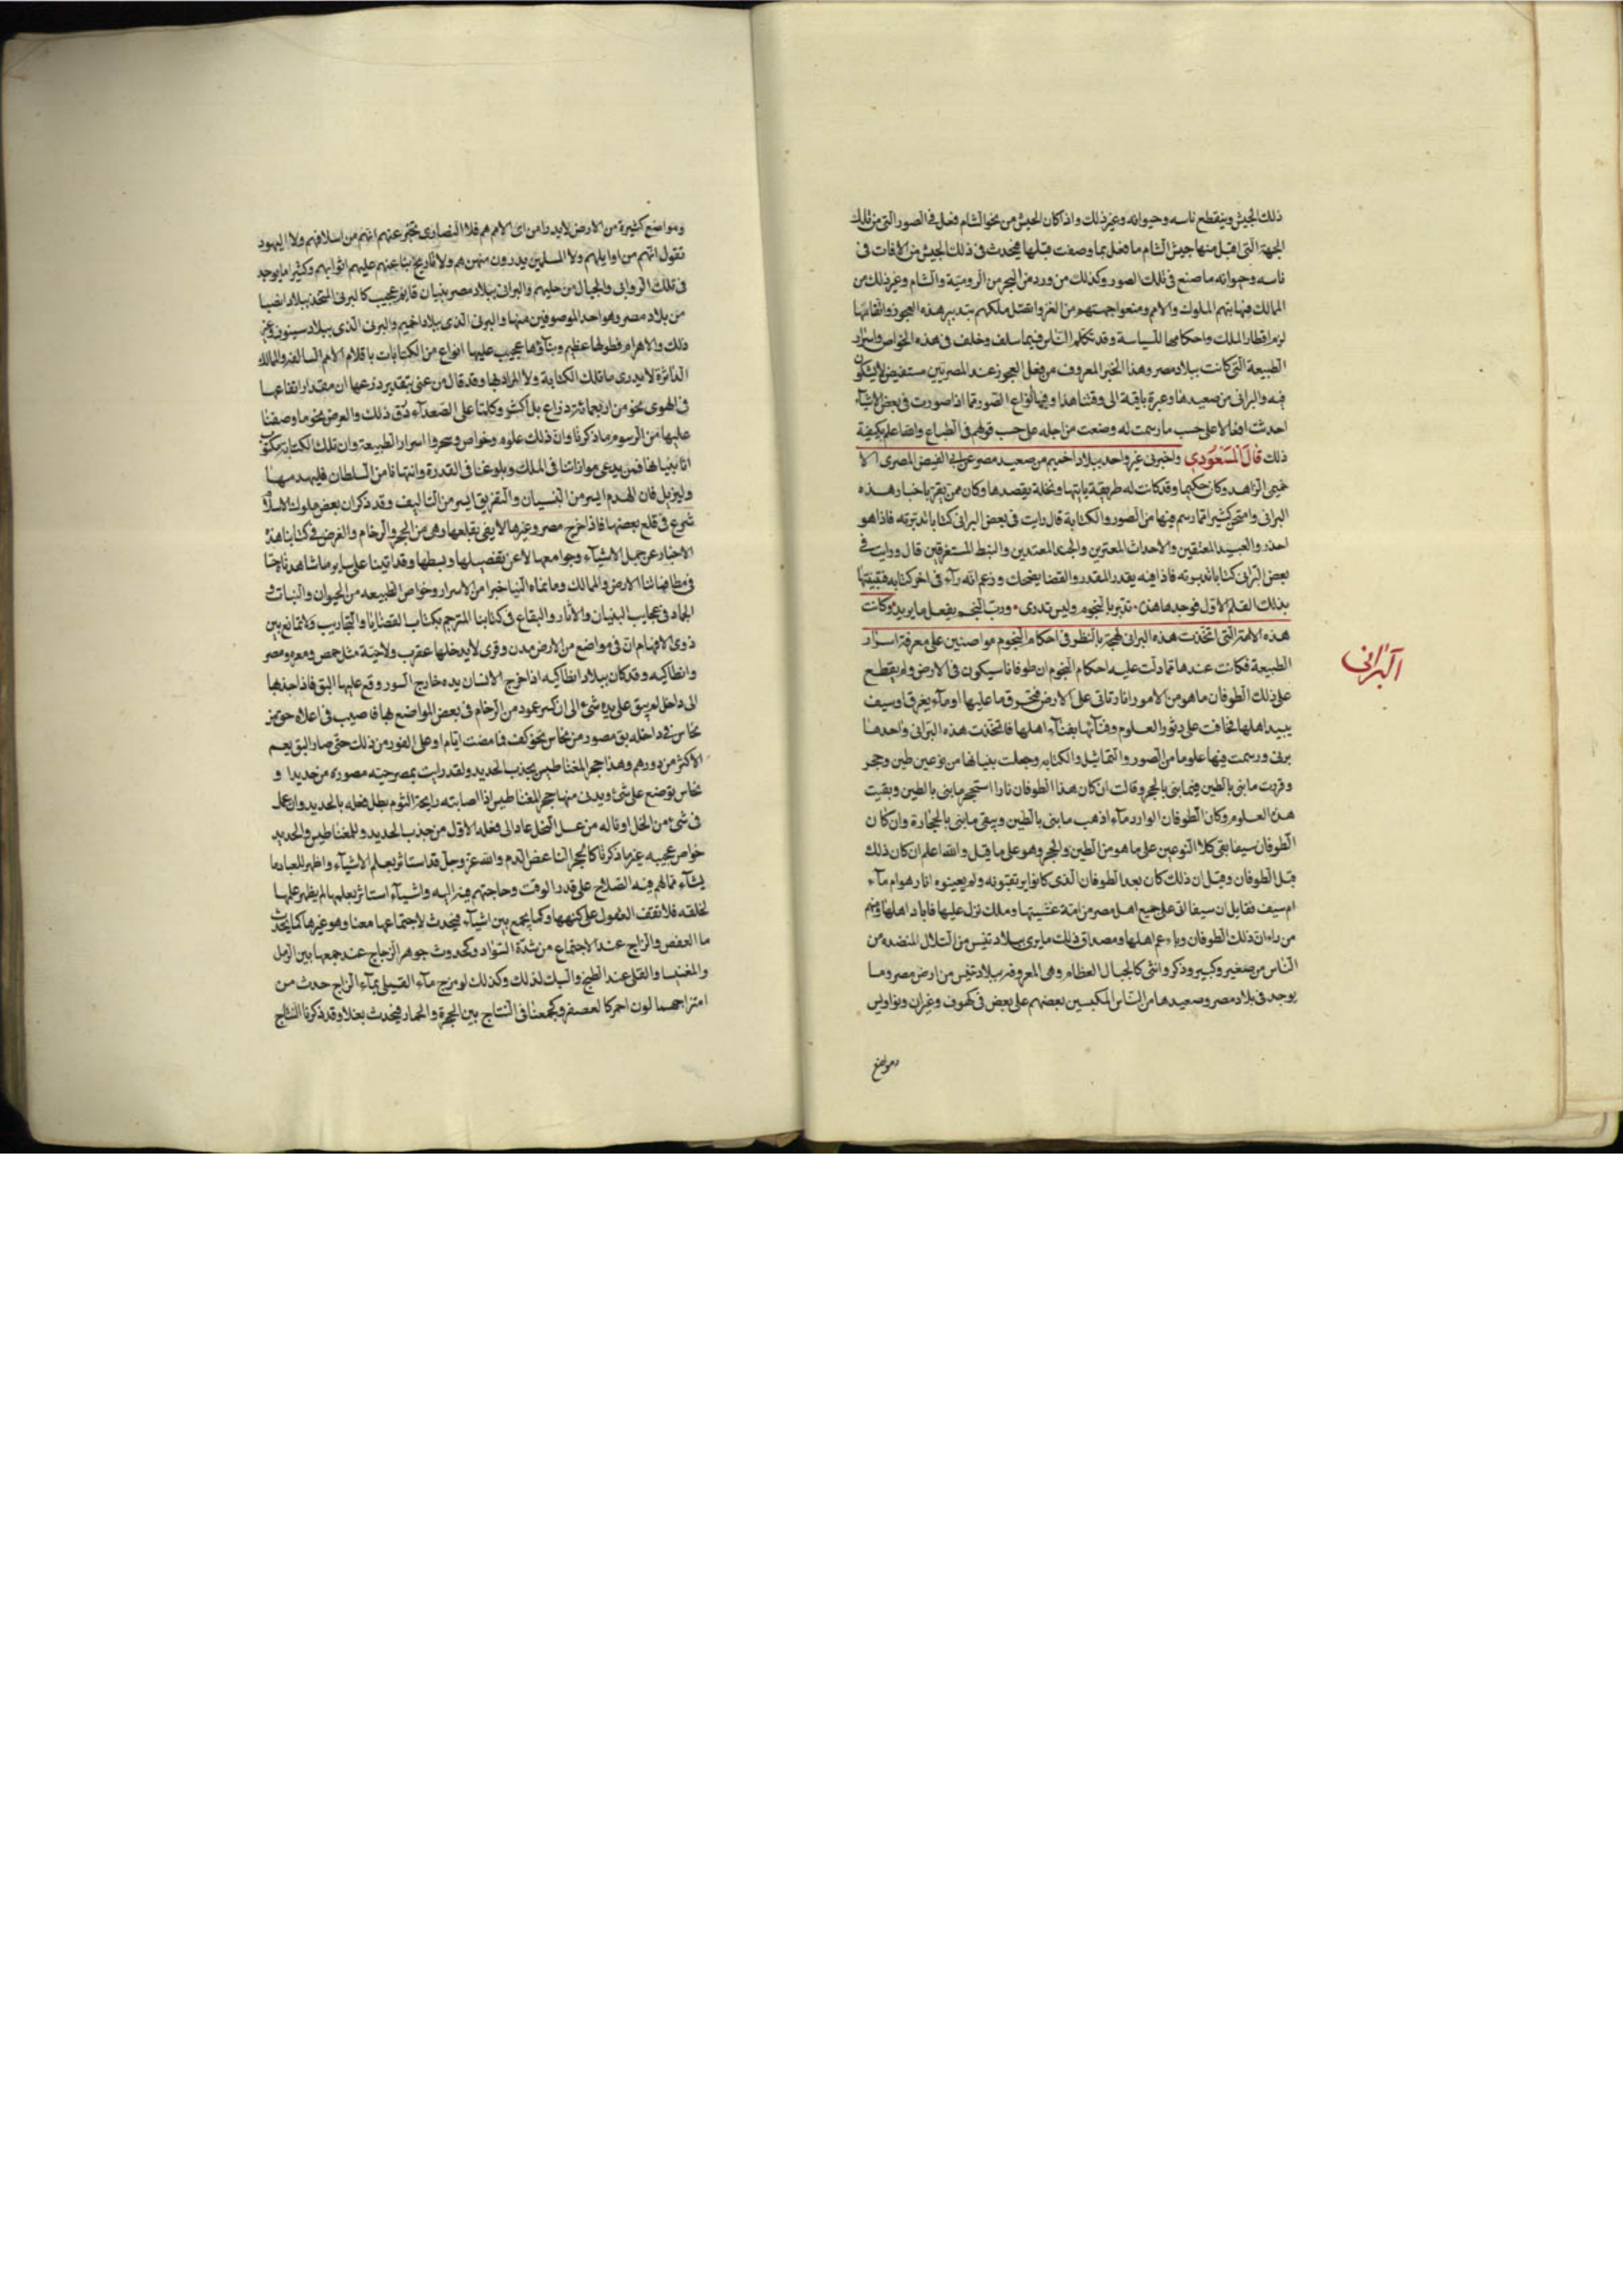 ذلك الجيش وينقطع ناسه وحيوانه وغير ذلك واذا كان الجيش من نحو الشام فعل في الصور التي من تلك
الجهة التي اقبل منها جيش الشام ما فعل بما وصفت قبلها فيحدث في ذلك الجيش من الافات في
ناسه وحيوانه ما صنع في تلك الصور وكذلك من ورد من البحر من الرومية والشام وغير ذلك من
الممالك فهابتهم الملوك والامم ومنعوا جهتهم من الغزو واتصل ملكهم بتدبير هذه العجوز واتقانها
لزم اقطار الملك واحكامها للسياسة وقد تكلم الناس فيما سلف وخلف في هذه الخواص واسرار
الطبيعة التي كانت ببلاد مصر وهذا الخبر المعروف من فعل العجوز عند المصريين مستفيض لا يشكون
فيه والبرابى من صعيدها وغيره باقية الى وقتنا هذا وفيها انواع الصور مما اذا صورت في بعض الاشياء
احدثت افعالا على حسب ما رسمت له وضعت من اجله على حسب قولهم في الطباع والله اعلم بكيفية
ذلك قال المسعودي واخبرني غير واحد ببلاد اخميم من صعيد مصر عن ابى الفيض المصرى الا
خميمى الزاهد وكان حكيما وقد كانت له طريقة ياتيها ونحلة يقصدها وكان ممن يقرّ باخبار هذه
البرابى وامتحن كثيرا مما رسم فيها من الصور والكتابة قال رايت في بعض البرابى كتابا تدبرته فاذا هو
احذر والعبيد المعتقين والاحداث المغترين والجند المعتدين والنبط المستعربين قال ورايت في
بعض البرابى كتابا تدبرته فاذا فيه يقدر المقدر والقضا يضحك وزعم انه رآء في اخر كتابه فقبيتها
بذلك القلم الاول فوجدها هذه تدبر بالنجوم وليس تدرى ورب النجم يفعل ما يريد وكانت
هذه الامة التي اتخذت هذه البرابى لهجة بالنظر في احكام النجوم مواصنين على معرفة اسرار
الطبيعة فكانت عندها مما دلت عليه احكام النجوم ان طوفانا سيكون في الارض ولم يقطع
على ذلك الطوفان ما هو من الامور انار تاتى على الارض فتحرق ما عليها او ماء يغرق او سيف
يبيد اهلها فخافت على دثور العلوم وفنائها بفناء اهلها فاتخذت هذه البرابى واحدها
بربى ورسمت فيها علوما من الصور والتماثيل والكتابه وجعلت بنيانها من نوعين طين وحجر
وفرزت ما بنى بالطين مما بنى بالحجر وقالت ان كان هذا الطوفان نارا استحجر ما بنى بالطين وبقيت
هذه العلوم وكان الطوفان الوارد ماء اذهب ما بنى بالطين ويبقى ما بنى بالحجارة وان كان
الطوفان سيفا بقى كلا النوعين على ما هو من الطين والحجر وهو على ما قيل والله اعلم ان كان ذلك
قبل الطوفان وقيل ان ذلك كان بعد الطوفان الذى كانوا يرتقبونه ولم يعينوه انار هو ام ماء
ام سيف فقايل ان سيفا اتى على جميع اهل مصر من امة غشيتها وملك نزل عليها فاباد اهلها ومنهم
من راى ان ذلك الطوفان وباء عم اهلها ومصداق ذلك ما يرى ببلاد تنيس من التلال المنضده من
الناس من صغير وكبير وذكر وانثى كالجبال العظام وهى المعروفه ببلاد تنيس من ارض مصر وما
يوجد في بلاد مصر وصعيدها من الناس المكبسين بعضهم على بعض في كهوف وغيران ونواويس
ومواضع
البرابى
ومواضع كثيرة من الارض لا يدرا من اى الامم هم فلا النصارى تخبر عنهم انهم من اسلافهم ولا اليهود
تقول انهم من اوايلهم ولا المسلمين يدرون من هم ولا تاريخ ينبا عنهم عليهم اثوابهم وكثيرا ما يوجد
في تلك الروابى والجبال من حليهم والبرابى ببلاد مصر بنيان قايم عجيب كالبربى المتخذ ببلاد انصيا
من بلاد مصر وهو احد الموصوفين منها والبربى الذى ببلاد اخميم والبربى الذى ببلاد سمنود وغير
ذلك والاهرام فطولها عظيم وبناؤها عجيب عليها انواع من الكتابات باقلام الامم السالفه والممالك
الداثرة لا يدرى ما تلك الكتابة ولا المراد بها وقد قال من عنى بتقدير ذرعها ان مقدار ارتفاعها
في الهوى نحو من اربعمائة ذراع بل اكثر وكلما على الصعداء دق ذلك والعرض نحو ما وصفنا
عليها من الرسوم ما ذكرنا وان ذلك علوم وخواص وسحر واسرار الطبيعة وان تلك الكتابة مكتوب
انا بنيناها فمن يدعى موازاتنا في الملك وبلوغنا في القدرة وانتهانا من السلطان فليهدمها
وليزيل فان الهدم ايسر من البنيان والتفريق ايسر من التاليف وقد ذكر ان بعض ملوك الاسلام
شرع في قلع بعضها فاذا خرج مصر وغيرها لا يفى بقلعها وهى من الحجر والرخام والغرض في كتابنا هذا
الاخبار عن جمل الاشياء وجوامعها لا عن تفصيلها وبسطها وقد اتينا على ساير ما شاهدناه حسا
في مطافاتنا الارض والممالك وما نماء الينا خبرا من الاسرار وخواص الطبيعه من الحيوان والنبات و
الجماد في عجايب البنيان والاثار والبقاع في كتابنا المترجم بكتاب القضايا والتجاريب ولا تمانع بين
ذوى الافهام ان في مواضع من الارض مدن وقرى لا يدخلها عقرب ولا حية مثل حمص ومعره ومصر
وانطاكيه وقد كان ببلاد انطاكيه اذا اخرج الانسان يده خارج السور وقع عليها البق فاذا جذبها
الى داخل لم يبق على يده شئ الى ان كسر عمود من الرخام في بعض المواضع بها فاصيب في اعلاه حق من
نحاس في داخله بق مصور من نحاس نحو كف فما مضت ايام او على الفور من ذلك حتى صار البق يعم
الاكثر من دورهم وهذا حجر المغناطيس يجذب الحديد ولقد رايت بمصر حيّة مصوره من حديد او
نحاس يوضع على شئ ويدنى منها حجر المغناطيس اذا اصابته رايحة الثوم بطل فعله بالحديد وان عمل
في شئ من الخل او ناله من عسل النحل عاد الى فعله الاول من جذب الحديد وللمغناطيس والحديد
خواص عجيبه غير ما ذكرنا كالحجر الناغض الدم والله عز وجل قد استاثر بعلم الاشياء واظهر للعباد ما
يشاء مما لهم فيه الصلاح على قدر الوقت وحاجتهم فيه اليه واشياء استاثر بعلمها لم يظهر عليها
لخلقه فلا تقف العقول على كنهها وكما يجمع بين اشياء فيحدث لاجتماعها معنا وهو غيرها كما يحدث
ما العفص والزاج عند الاجتماع من شدة السواد وكحدوث جوهر الزجاج عند جمعها بين الرمل
والمغنيسا والقلى عند الطبخ والسبك لذلك وكذلك لو مزج ماء القلى بماء الزاج حدث من
امتزاجهما لون احمر كالعصفر وكجمعنا في النتاج بين الحجرة والحمار فيحدث بغلا وقد ذكرنا النتاج